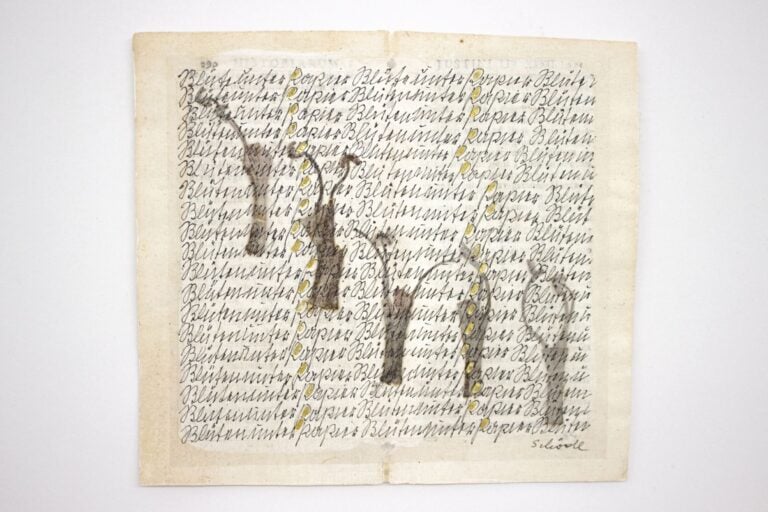 Blüten unter Papier Blüten unter Papier Blüten
Blüten unter Papier Blüten unter Papier Blüten
Blüten unter Papier Blüten unter Papier Blüten
Blüten unter Papier Blüten unter Papier Blüten
Blüten unter Papier Blüten unter Papier Blüten
Blüten unter Papier Blüten unter Papier Blüten
Blüten unter Papier Blüten unter Papier Blüte
Blüten unter Papier Blüten unter Papier Blüt
Blüten unter Papier Blüten unter Papier Blüten
Blüten unter Papier Blüten unter Papier Blüten
Blüten unter Papier Blüten unter Papier Blüten
Blüten unter Papier Blüten unter Papier Blüten
Blüten unter Papier Blüten unter Papier Blüten
Blüten unter Papier Blüten unter Papier Blüten
Blüten unter Papier Blüten unter Papier Blüten
Blüten unter Papier Blüten unter Papier Blüten
Blüten unter Papier Blüten unter Papier Blüten
Blüten unter Papier Blüten unter Papier Blüten
Blüten unter Papier Blüten unter Papier Blüten